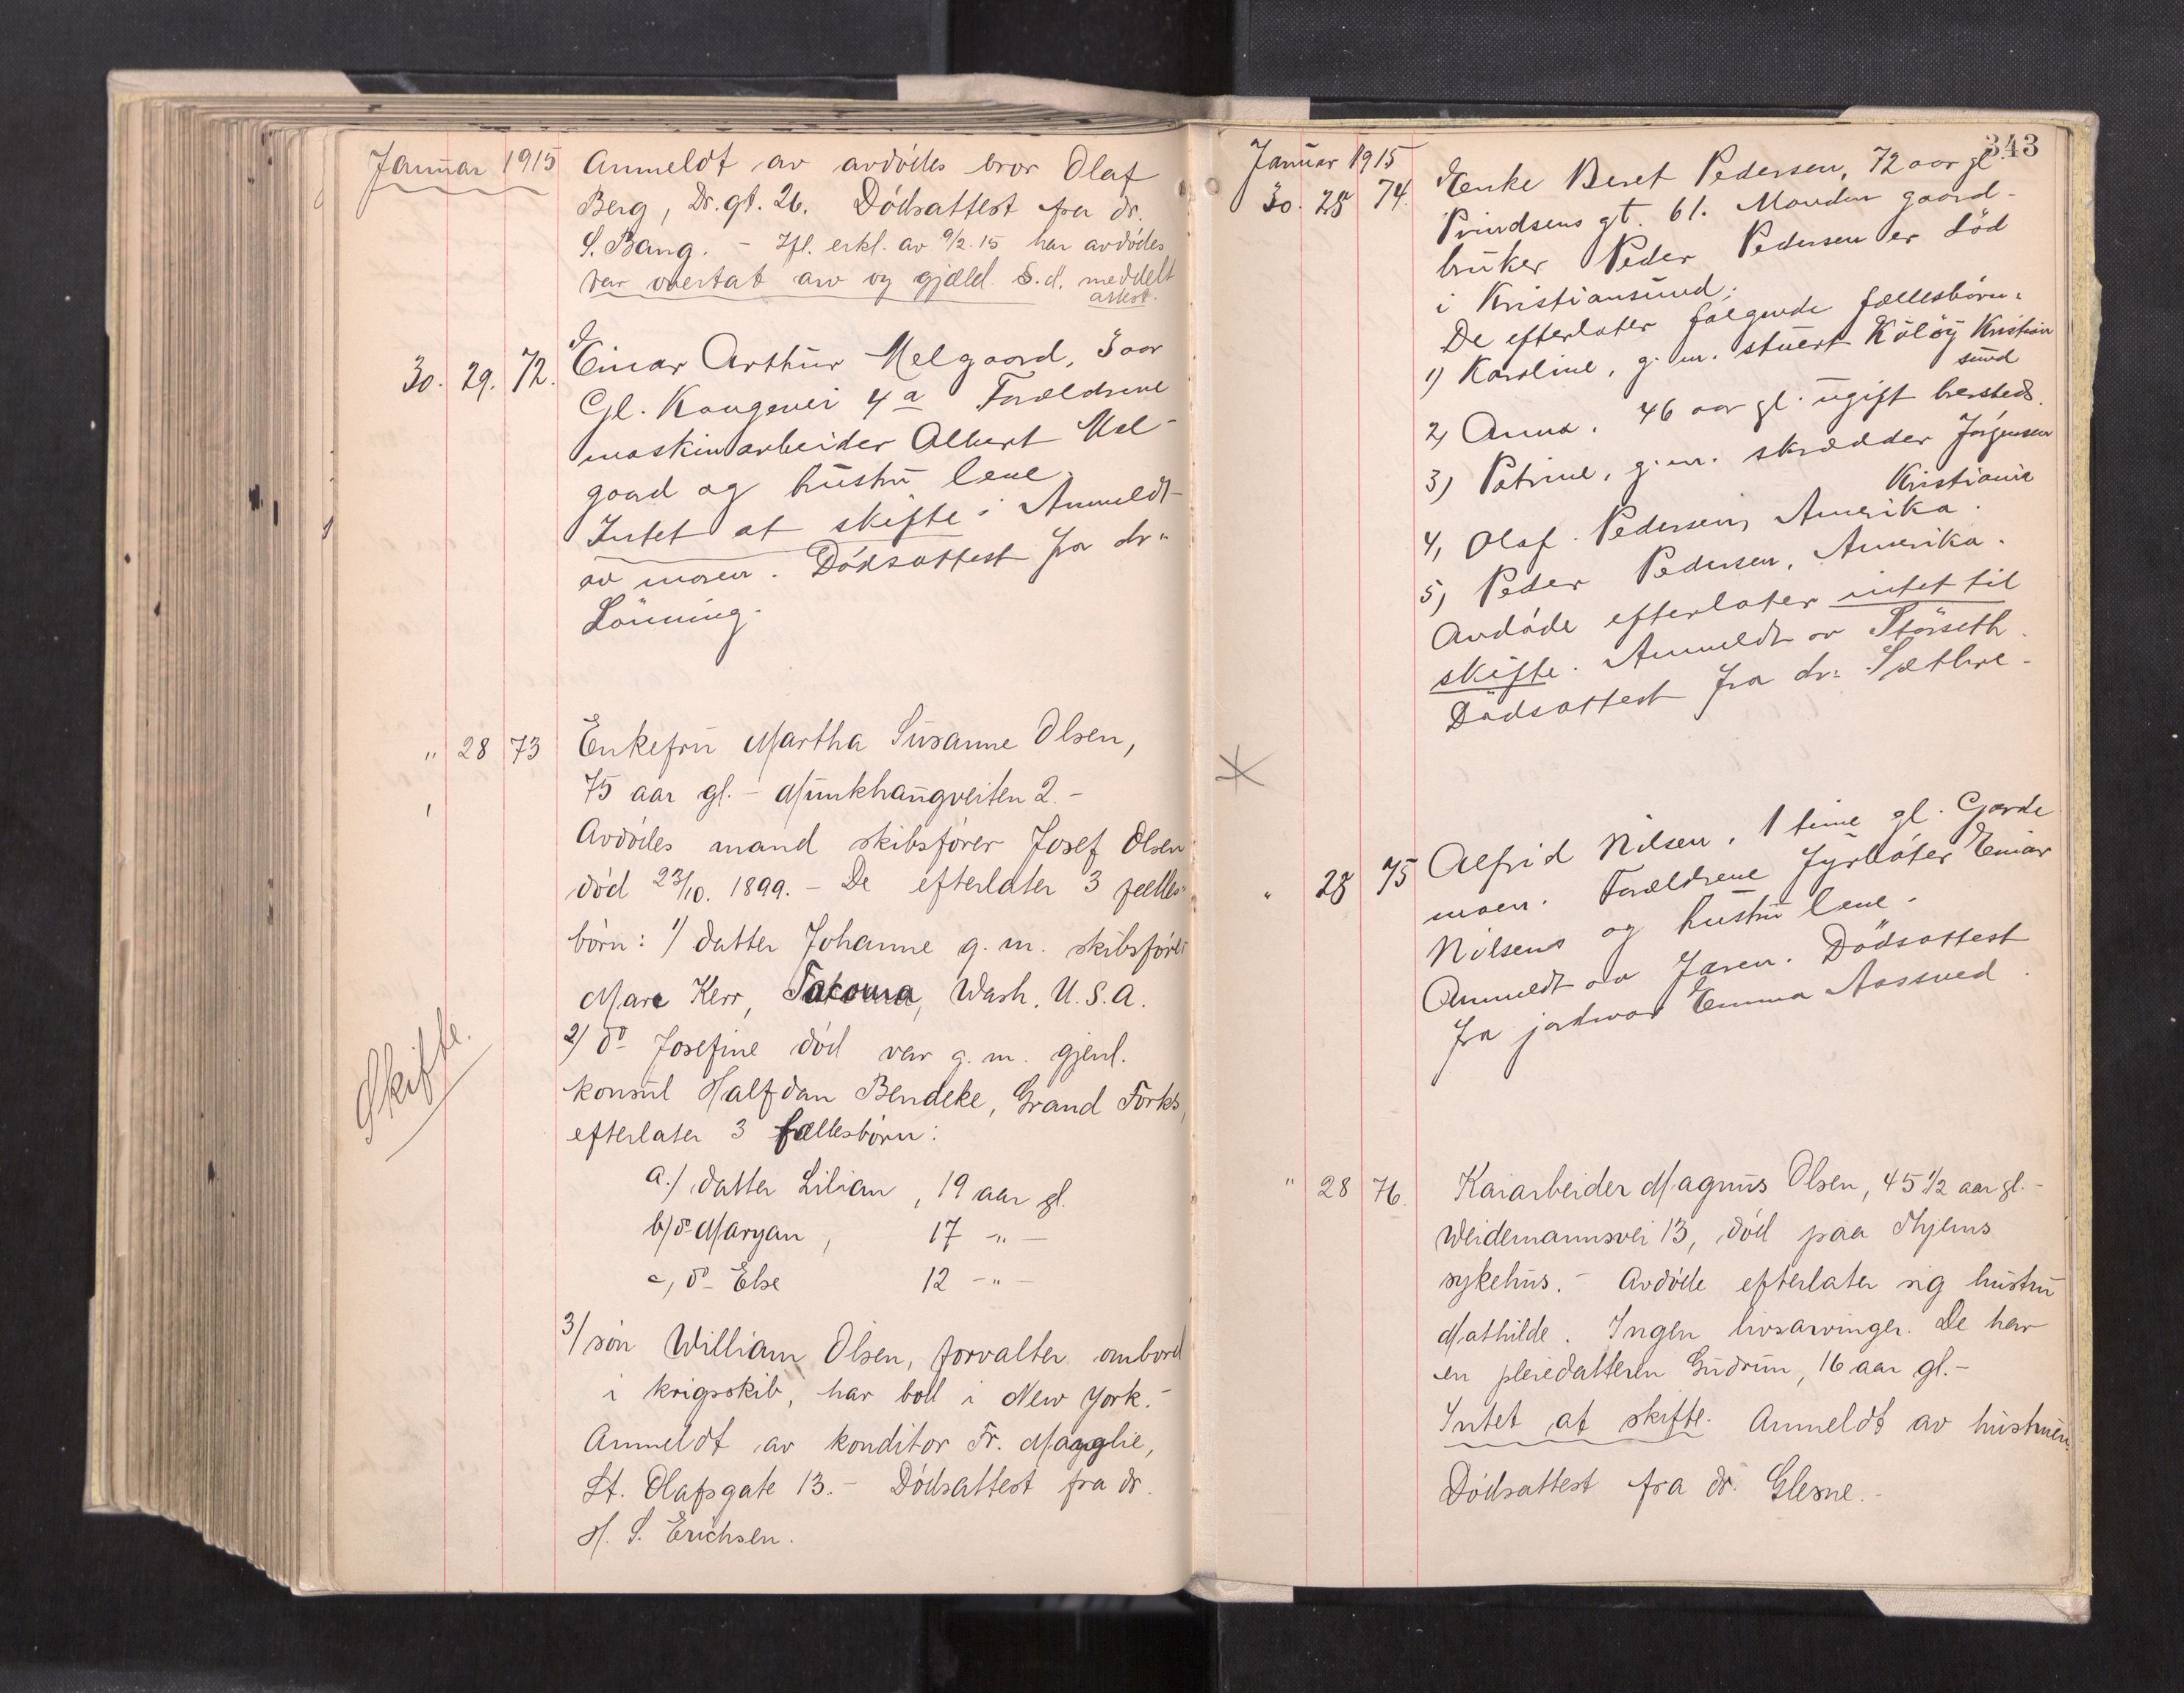 Januar 1915
Anmeldt av avdødes bror Olaf
Berg, Dr. gt. 26. Dødsattest fra dr.
S. Bang. - Ifl. erkl. av 9/2. 15 har avdødes
far overtat arv og gjæld. S. d. meddelt
attest.
30. 29. 72. Einar Arthur Melgaard, 3 aar
Gl. Kongevei 4a Forældrene
maskinarbeider Albert Mel-
gaard og hustru Lene
Intet at skifte. Anmeldt
av moren. Dødsattest fra dr.
Lönning.
" 28 73 Enkefru Martha Susanne Olsen,
75 aar gl. - Munkhaugveiten 2. -
Avdødes mand skibsfører Josef Olsen
død 23/10. 1899. - De efterlater 3 fælles-
børn: 1) datter Johanne g. m. skibsfører
Marc Kerr, Tacoma, Wash. U. S. A.
2) do Josefine død var g. m. gjenl.
konsul Halfdan Bendeke, Grand Forks,
efterlater 3 fællesbørn:
a.) datter Lilian, 19 aar gl.
b) do Maryan, 17 - " -
c, do Else 12 - " -
3) søn William Olsen, forvalter ombord
i krigsskib, har boll i New York. -
Anmeldt av konditor Fr. Magglie,
St. Olafsgate 13. - Dødsattest fra dr.
H. S. Erichsen.
Skifte.
343
Januar 1915
30. 28 74. Enke Beret Pedersen, 72 aar gl
Prindsens gt. 61. Manden gaard-
bruker Peder Pedersen er død
i Kristiansund.
De efterlater følgende fællesbørn:
1) Karoline, g. m. stuert Kòlöy Kristian
sund
2, Anna, 46 aar gl. ugift hersteds.
3) Petrine, g. m. skrædder Jörgensen
Kristiania
4, Olaf Pedersen, Amerika.
5, Peder Pedersen, Amerika.
Avdøde efterlater intet til
skifte. Anmeldt av Störseth.
Dødsattest fra dr. Sæthre.
" 28 75 Alfrid Nilsen, 1 time gl. Garde
moen. Forældrene fyrbøter Einar
Nilsens og hustru Lene.
Anmeldt av faren. Dødsattest
fra jordmor Emma Aasved.
" 28 76. Kaiarbeider Magnus Olsen, 45 1/2 aar gl. -
Weidemannsvei 13, død paa Thjems
sykehus. - Avdøde efterlater sig hustru
Mathilde. Ingen livsarvinger. De har
en pleiedatteren Gudrun, 16 aar gl. -
Intet at skifte. Anmeldt av hustruen.
Dødsattest fra dr. Glesne. -